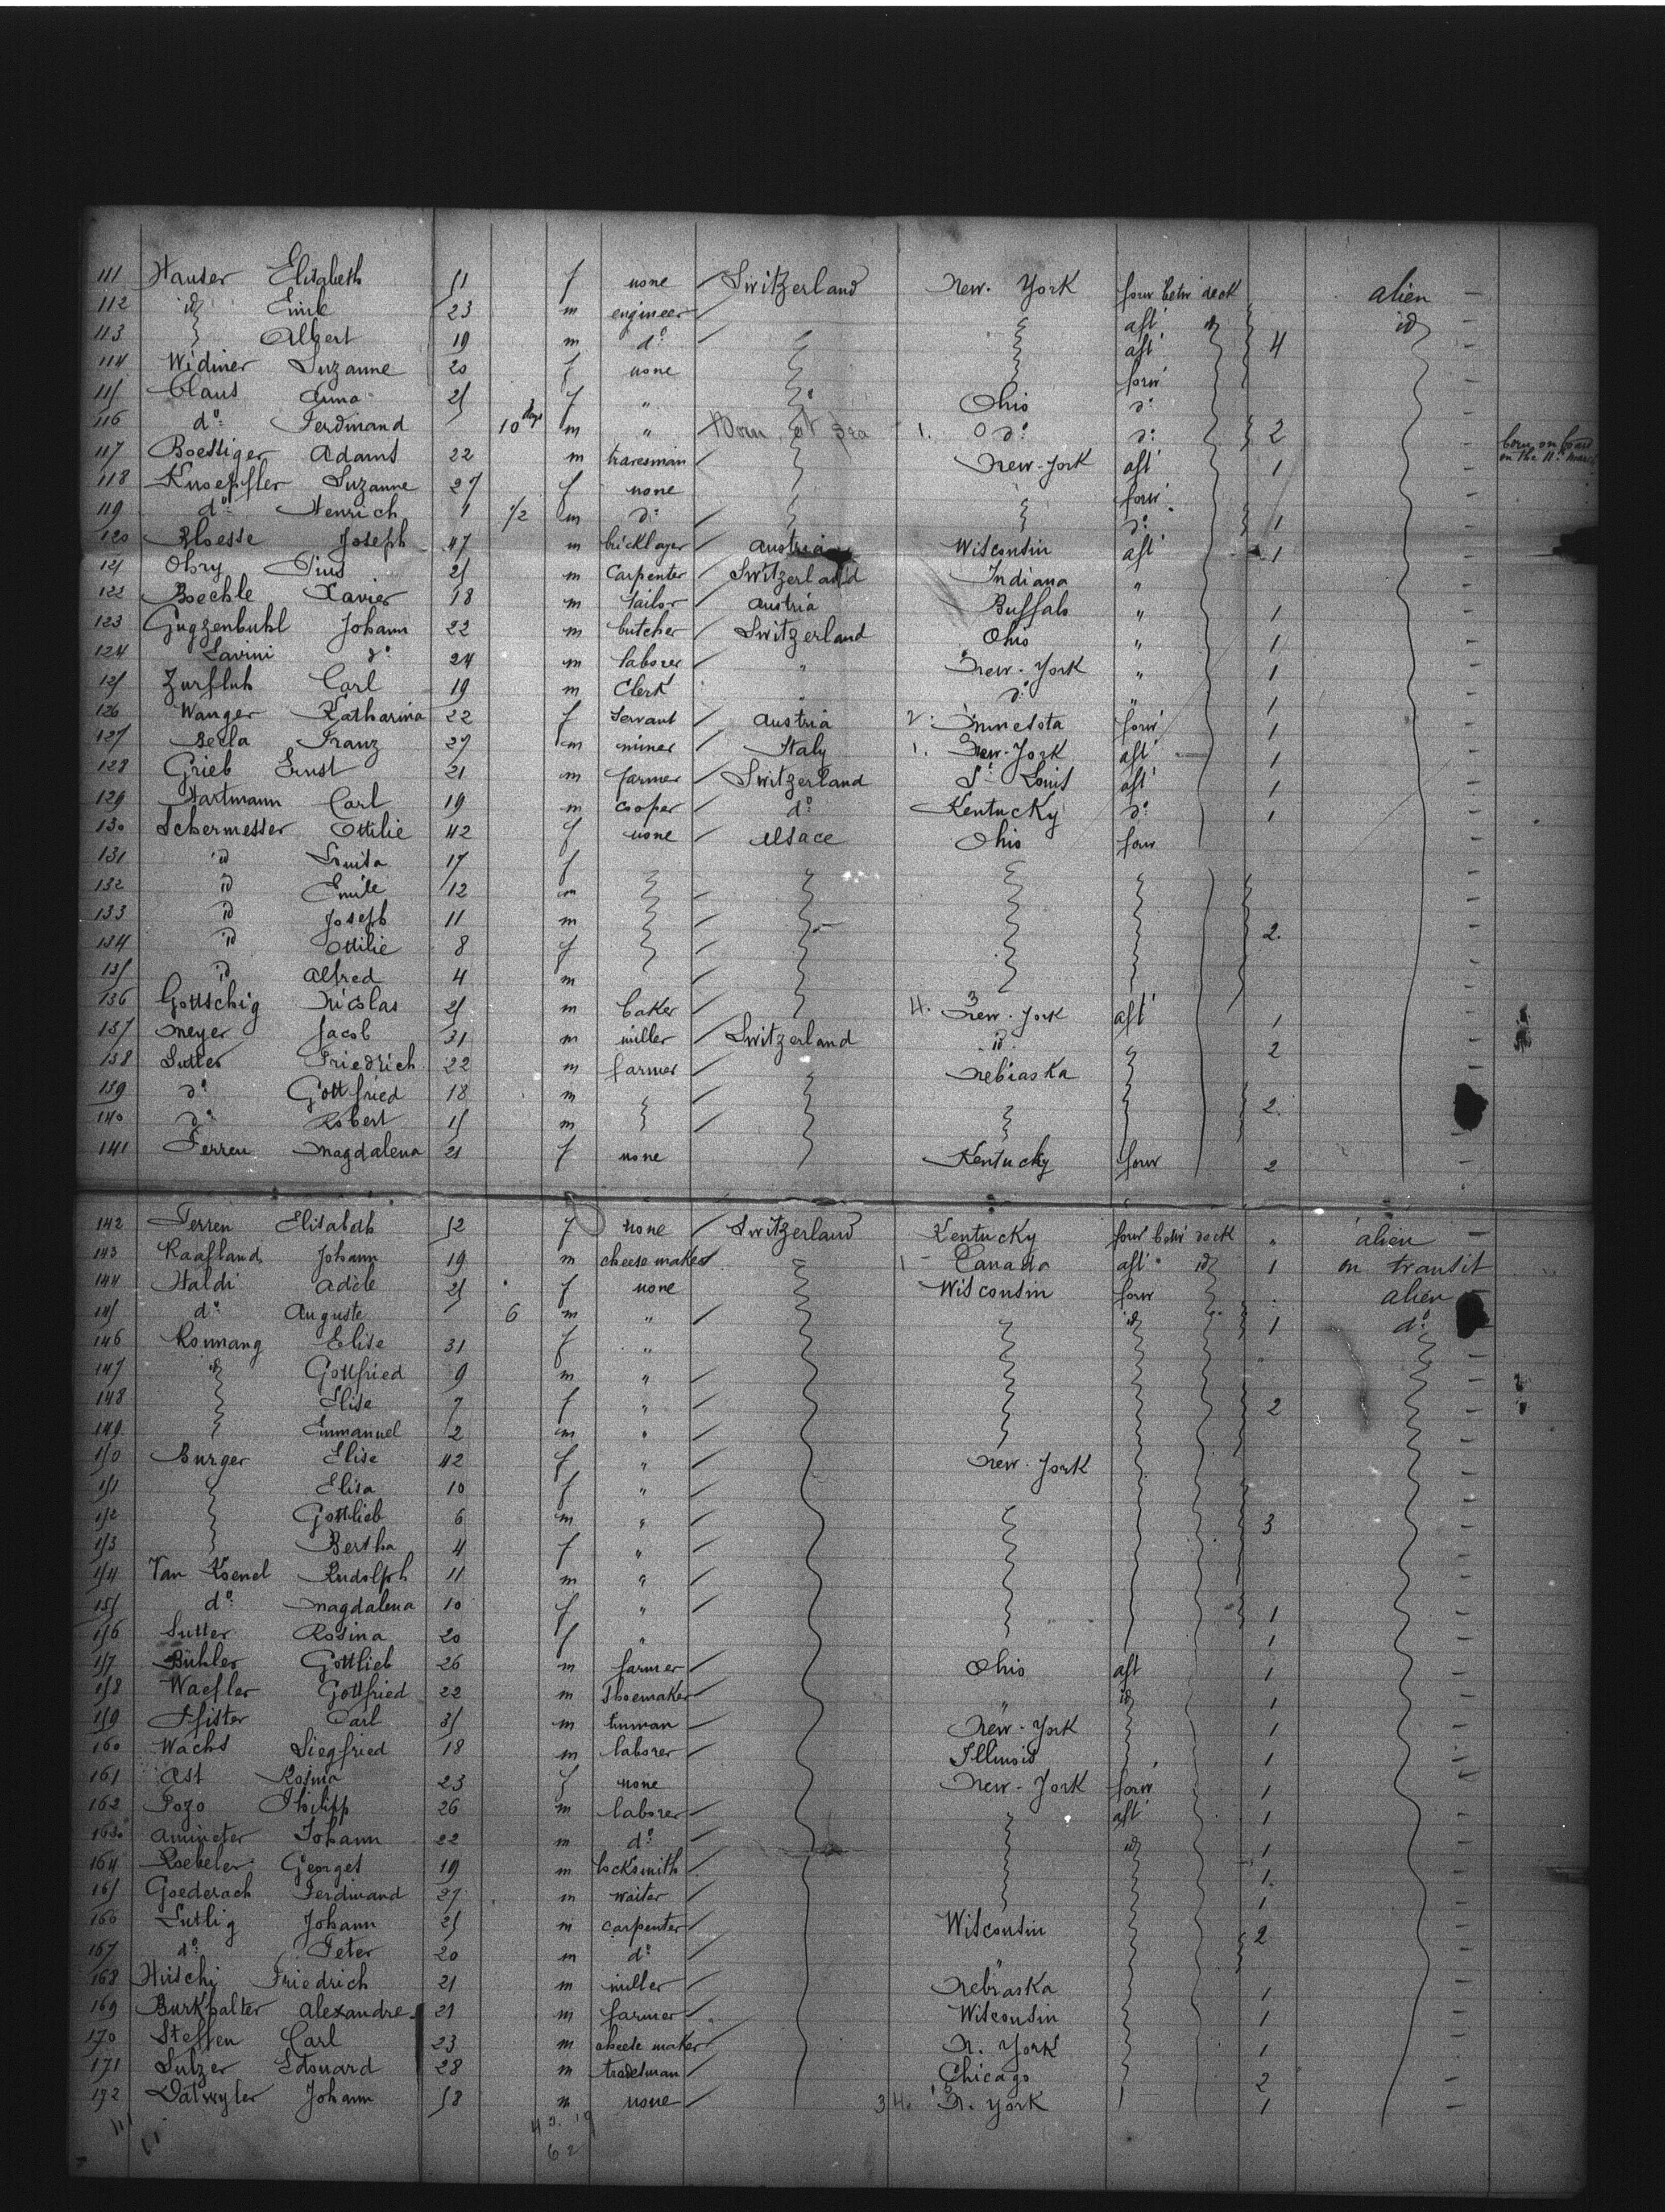 111 Hauser Elisabeth 51 f none Switzerland New-York forw betw deck alien
112 id Emile 23 m engineer aft id id
113 Albert 19 m do aft 4
114 Widmer Suzanne 20 f none forw
115 Claus Anna 25 f " Ohio do
116 do Ferdinand 10 days m " Born at sea 1. do do 2 born on board on the 11th March
117 Boessiger Adams 22 m tradesman New-York aft 1
118 Knoepfler Suzanne 27 f none forw
119 do Henrich 1 1/2 m do do 1
120 Bloesse Joseph 47 m bricklayer Austria Wisconsin aft 1
121 Obry Pius 25 m carpenter Switzerland Indiana "
122 Boechle Xavier 18 m tailor Austria Buffalo " 1
123 Guggenbuhl Johann 22 m butcher Switzerland Ohio " 1
124 Lavini do 24 m laborer " New-York " 1
125 Zurfluh Carl 19 m clerk " do " 1
126 Wanger Katharina 22 f servant Austria 2. Minnesota forw 1
127 Becla Franz 27 m miner Italy 1. New-York aft 1
128 Grieb Ernst 21 m farmer Switzerland St Louis aft 1
129 Hartmann Carl 19 m cooper do Kentucky do 1
130 Schermesser Ottilie 42 f none Elsace Ohio forw
131 id Louisa 17 f
132 id Emile 12 m
133 id Joseph 11 m 2
134 id Ottilie 8 f
135 id Alfred 4 m
136 Gottschig Nicolas 25 m baker 4. 3 New-York aft 1
137 Meyer Jacob 31 m miller Switzerland id 2
138 Sutter Friedrich 22 m farmer Nebraska
139 do Gottfried 18 m 2
140 do Robert 15 m
141 Ferren Magdalena 21 f none Kentucky forw 2
142 Ferren Elisabeth 52 f none Switzerland Kentucky forw betw deck " alien
143 Raafland Johann 19 m cheese maker 1 Canada aft id 1 on transit
144 Haldi Adèle 25 f none Wisconsin forw alien
145 do Auguste 6 m " id 1 do
146 Romang Elise 31 f "
147 id Gottfried 9 m "
148 Elise 7 f " 2
149 Emmanuel 2 m "
150 Burger Elise 42 f " New-York
151 Elisa 10 f "
152 Gottlieb 6 m " 3
153 Bertha 4 f "
154 Van Koenel Rudolph 11 m "
155 do Magdalena 10 f " 1
156 Sutter Rosina 20 f " 1
157 Bühler Gottlieb 26 m farmer Ohio aft 1
158 Waefler Gottfried 22 m shoemaker " id 1
159 Pfister Carl 35 m tinman New-York 1
160 Wachs Siegfried 18 m laborer Illinois 1
161 Ast Rosina 23 f none New-York forw 1
162 Pozo Philipp 26 m laborer aft 1
163 Amineter Johann 22 m do id 1
164 Roebeler Georges 19 m locksmith 1
165 Goederach Ferdinand 27 m waiter 1
166 Luthig Johann 25 m carpenter Wisconsin 2
167 do Peter 20 m do "
168 Hirschi Friedrich 21 m miller Nebraska 1
169 Burkhalter Alexandre 21 m farmer Wisconsin 1
170 Steffen Carl 23 m cheese maker N. York 1
171 Sulzer Edouard 28 m tradesman Chicago 2
172 Dätwyler Johann 58 m none 34. N. York 1
43. 19
62